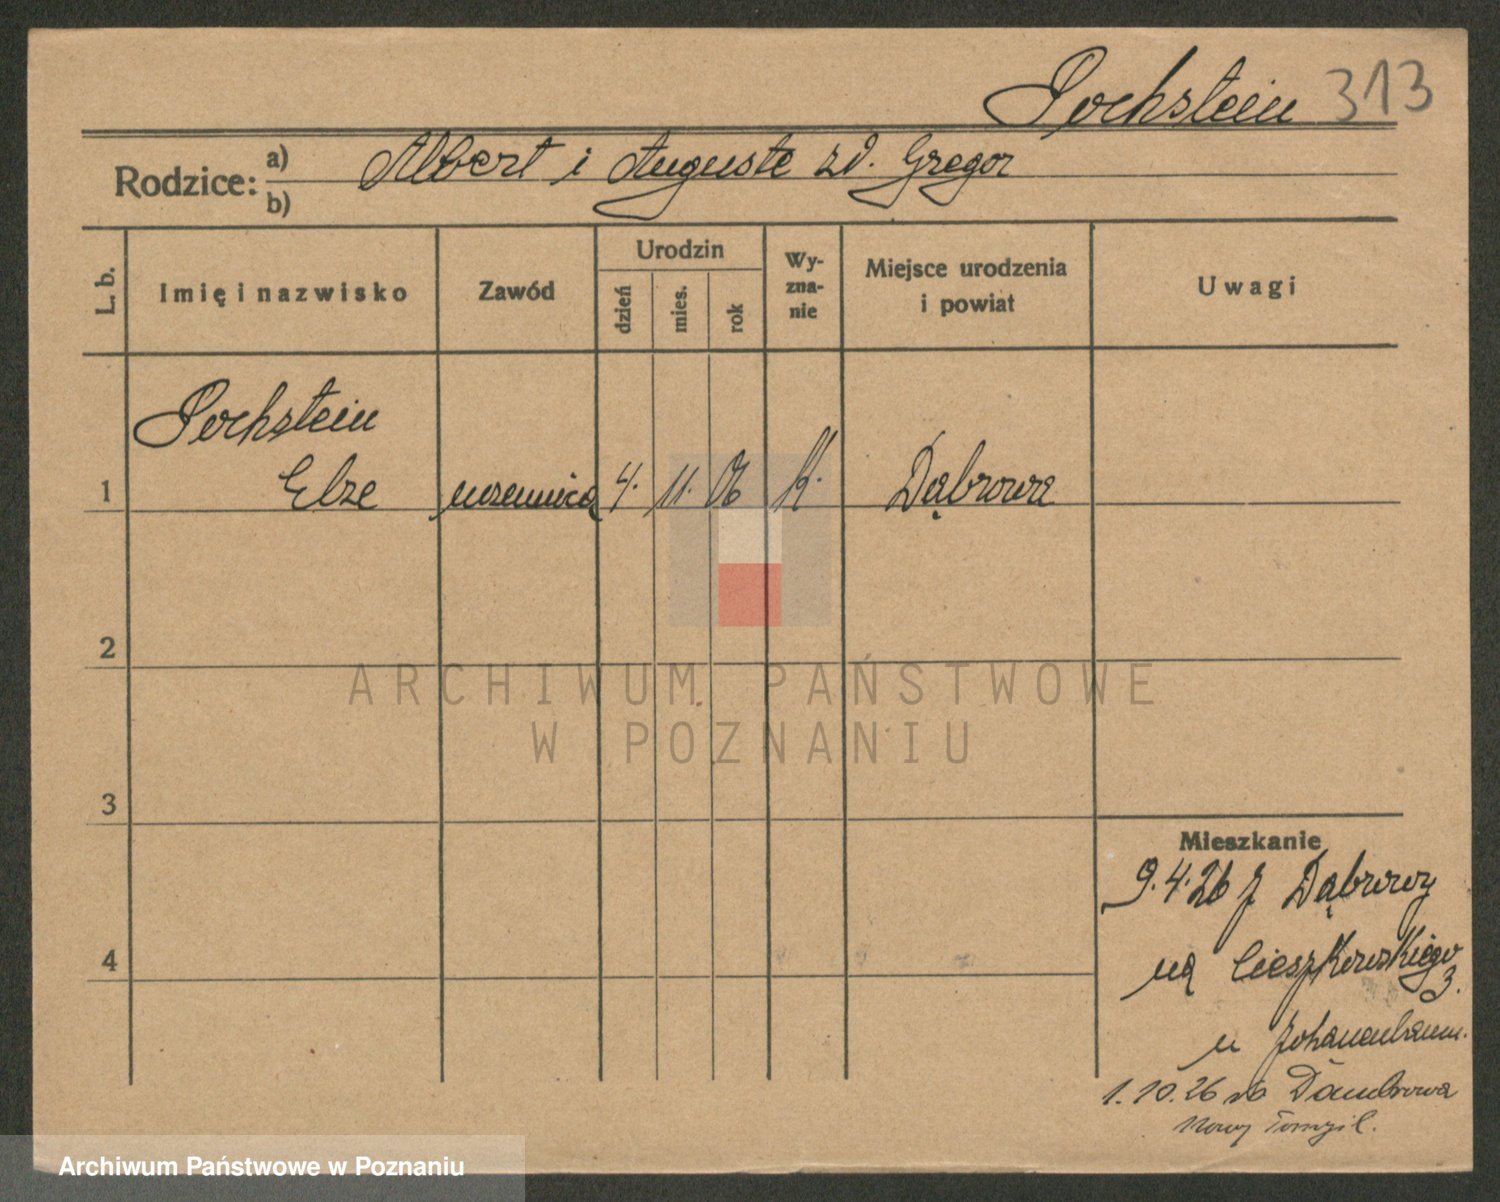 Pochstein 313
Rodzice: a) Albert i Auguste zd. Gregor
b)
L. b.
Imię i nazwisko
Zawód
Urodzin
dzień
mies.
rok
Wy-
zna-
nie
Miejsce urodzenia
i powiat
Uwagi
Pochstein
1 Elze uczennica 4. 11. 06 k. Dąbrowa
2
3
4
Mieszkanie
9.4.26 z Dąbrowy
na Cieszkowskiego
3.
u
1.10.26 do Dambrowa
Nowy Tomyśl.
ARCHIWUM PAŃSTWOWE
W POZNANIU
Archiwum Państwowe w Poznaniu